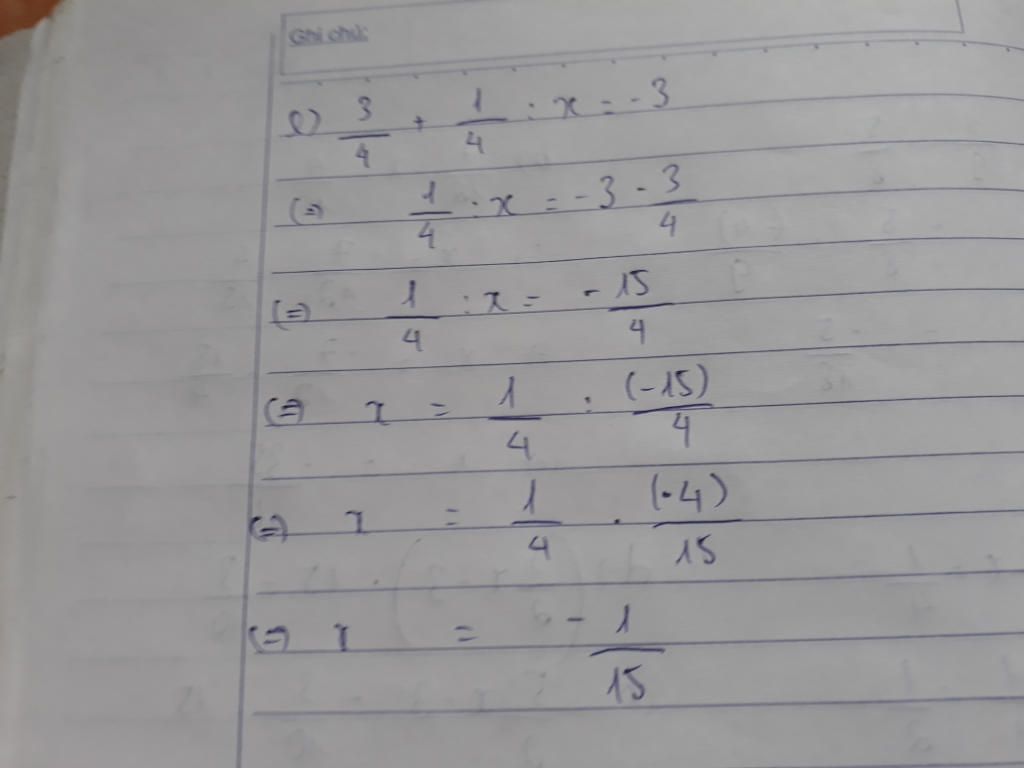 Ghi chú:
e) 3/4 + 1/4 : x = -3
(=) 1/4 : x = -3 - 3/4
(=) 1/4 : x = -15/4
(=) x = 1/4 : (-15)/4
(=) x = 1/4 . (-4)/15
(=) x = -1/15